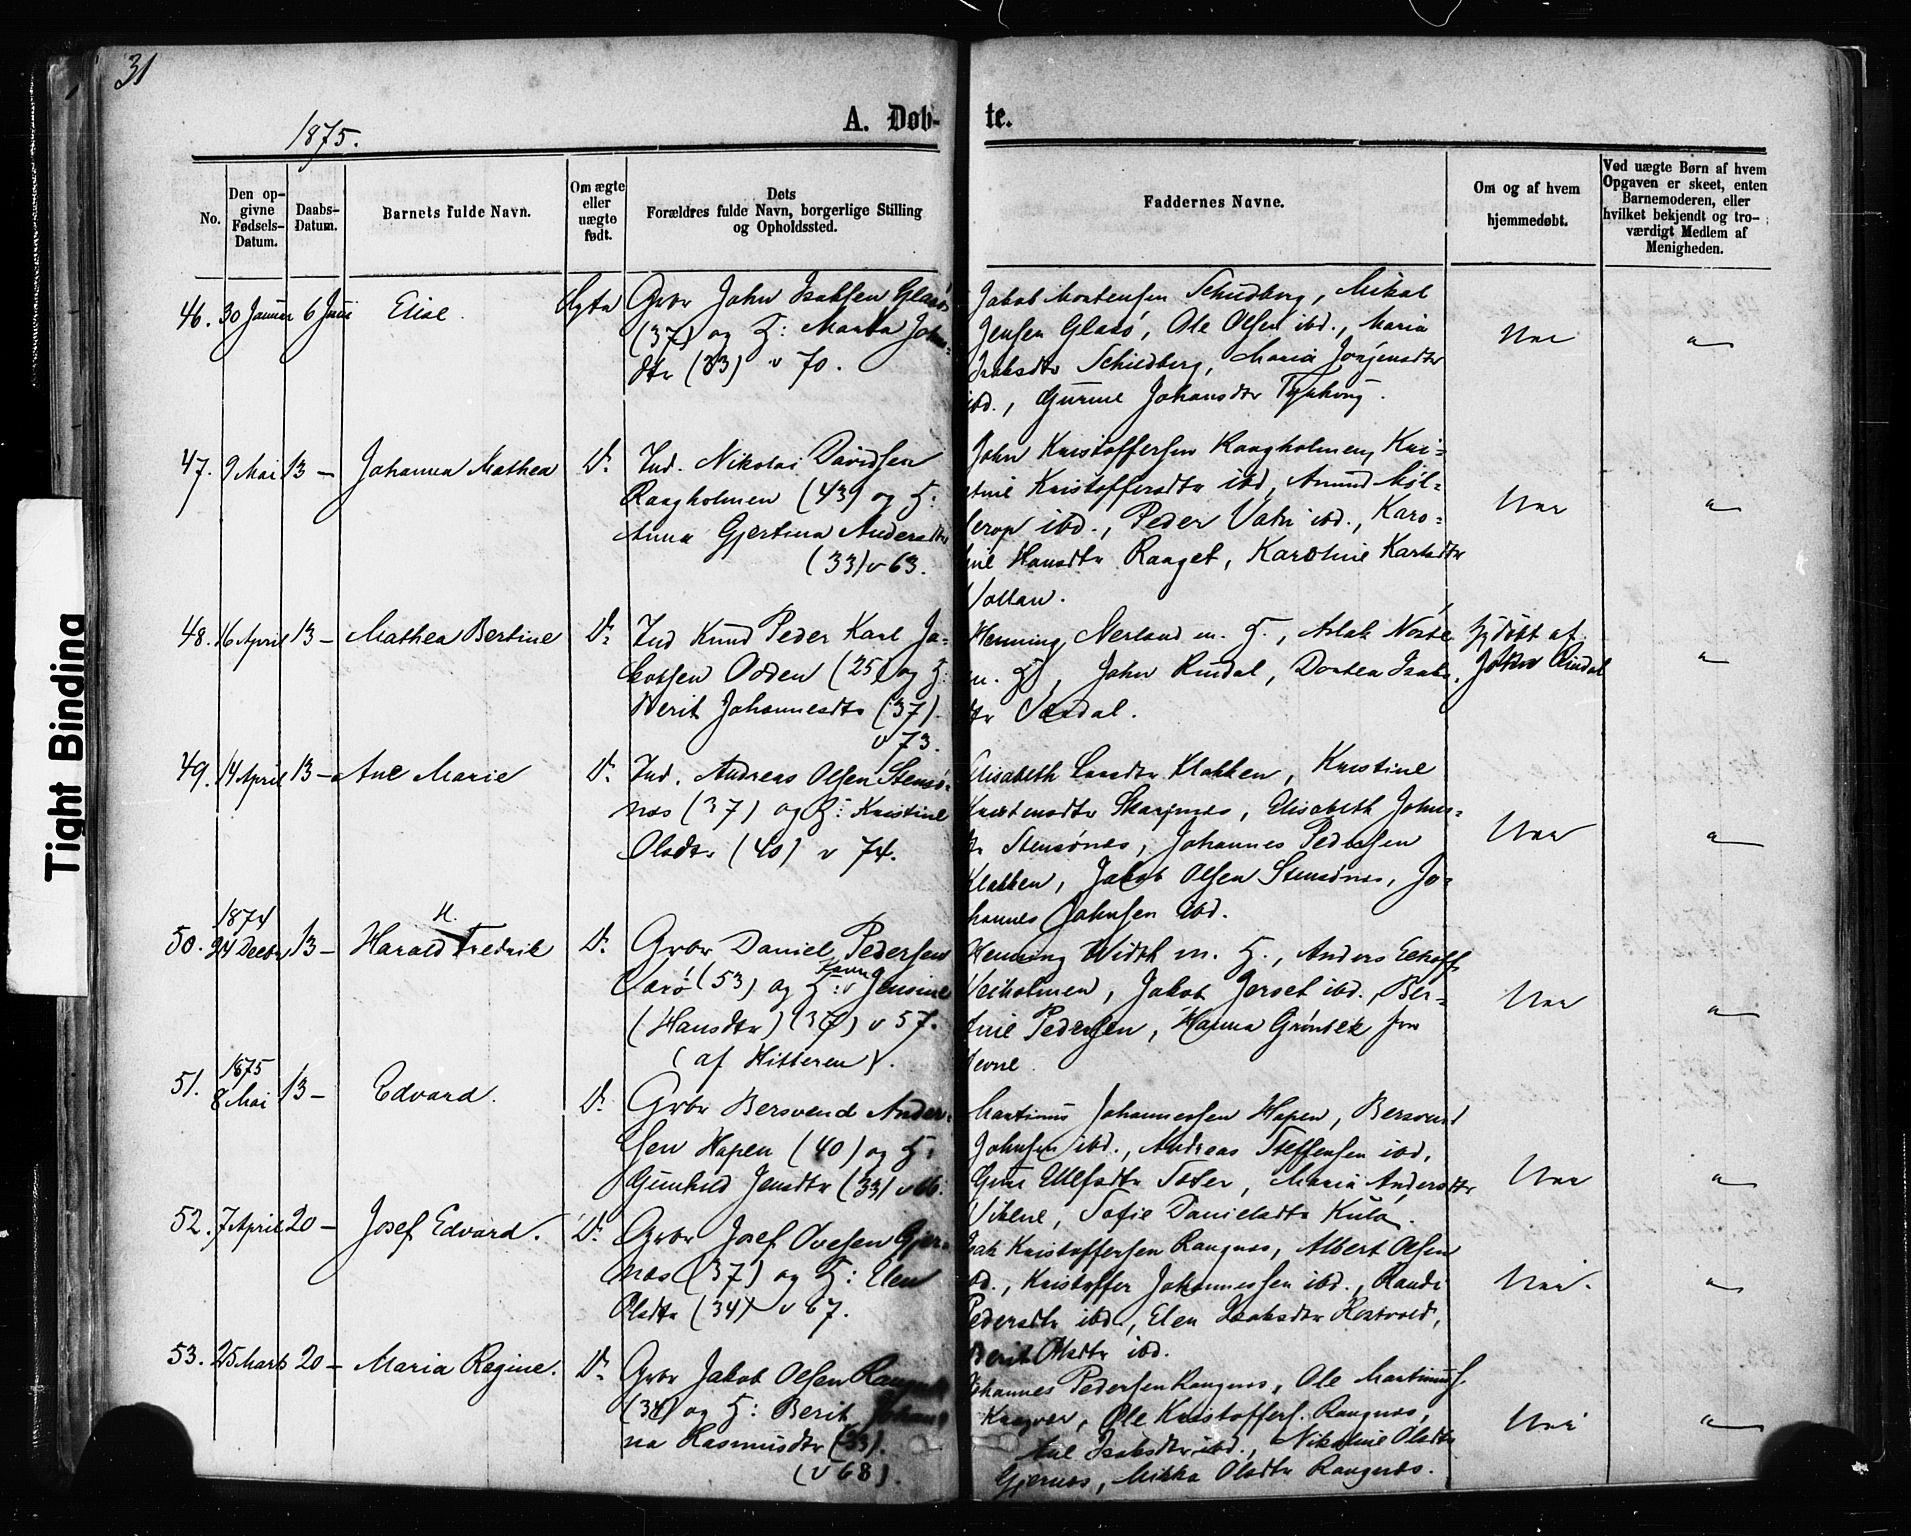 31
1875.
A. Døb-
te.
No.
Den op-
givne
Fødsels-
Datum.
Daabs-
Datum.
Barnets fulde Navn.
Om ægte
eller
uægte
født.
Dets
Forældres fulde Navn, borgerlige Stilling
og Opholdssted.
Faddernes Navne.
Om og af hvem
hjemmedøbt.
Ved uægte Børn af hvem
Opgaven er skeet, enten
Barnemoderen, eller
hvilket bekjendt og tro-
værdigt Medlem af
Menigheden.
46. 30 Januar 6 Juni Elise. Ægte
Grbr John Isaksen Glasø
(37) og H: Marta John-
dtr (33) v 70.
Jakob Mortensen Schiedberg, Mikal
Jensen Glasø, Ole Olsen ibd., Maria
Isaksdtr Schiedberg, Maria Jørgensdtr
ibd., Gurine Johansdtr
Nei
47. 9 Mai 13 – Johanna Mathea Do
Ind. Nikolai Davidsen
Raagholmen (43) og H.
Anna Gjertina Andersdtr
(33) v 63.
John Kristoffersen Raagholmen, Kri-
stine Kristoffersdtr ibd, Amund Møl-
lerop ibd., Peder Vatn ibd., Karo-
line Hansdtr Raaget, Karoline Karlsdtr
Vollan.
Nei
48. 16 April 13 – Mathea Bertine Do
Ind Knud Peder Karl Ja-
kobsen Odden (25) og H:
Berit Johannesdtr (37)
v 73.
Henning Nerland m. H., Aslak
m. H, John Rindal, Dortea Isaks-
dtr
Hjdøbt af
John Rindal
49. 14 April 13 – Ane Marie Do
Ind. Andreas Olsen Stensø-
næs (37) og H: Kristine
Olsdtr (40) v 74.
Elisabeth Larsdtr Klakken, Kristine
Kristensdtr Skarpnes, Elisabeth Johns-
dtr Stensønes, Johannes Pedersen
Klakken, Jakob Olsen Stensønes, Jo-
hannes Johnsen ibd.
Nei
50. 1874
24 Decbr 13 – Harald H. Fredrik Do
Grbr Daniel Pedersen
(53) og H: Karen Jensine
(Hansdtr) (37) v 57.
(af Hitteren).
Henning Width m. H., Anders Eckhoff
Veiholmen, Jakob Jerset ibd., Ber-
tine Pedersen, Hanna fra
Hevne.
Nei
51. 1875
8 Mai 13 – Edvard. Do
Grbr Bersvend Ander-
sen Hapen (40) og H:
Gunhild Jensdtr (33) v 66.
Martinus Johannessen Hapen, Bersvend
Johnsen ibd., Andreas Steffensen ibd,
Ulfsdtr Maria Andersdtr
Vikene, Sofie Danielsdtr Kulø.
Nei
52. 7 April 20 – Josef Edvard. Do
Grbr Josef Ovesen Gjer-
næs (37) og H: Elen
Olsdtr (34) v 67.
Isak Kristoffersen Rangnæs, Albert Olsen
ibd., Kristoffer Johannessen ibd., Randi
Pedersdtr ibd., Elen Isaksdtr Hestvold,
Berit Olsdtr ibd.
Nei.
53. 25 Marts 20 – Maria Regine. Do
Grbr Jakob Olsen Rangnæs
(34) og H: Berit Johan-
na Rasmusdtr (33).
(v 68).
Johannes Pedersen Rangnæs, Ole Martinus.
Kragvær, Ole Kristoffers. Rangnæs,
Ane Isaksdtr ibd., Nikoline Olsdtr
Gjernæs, Mikka Olsdtr Rangnæs.
Nei
Tight Binding